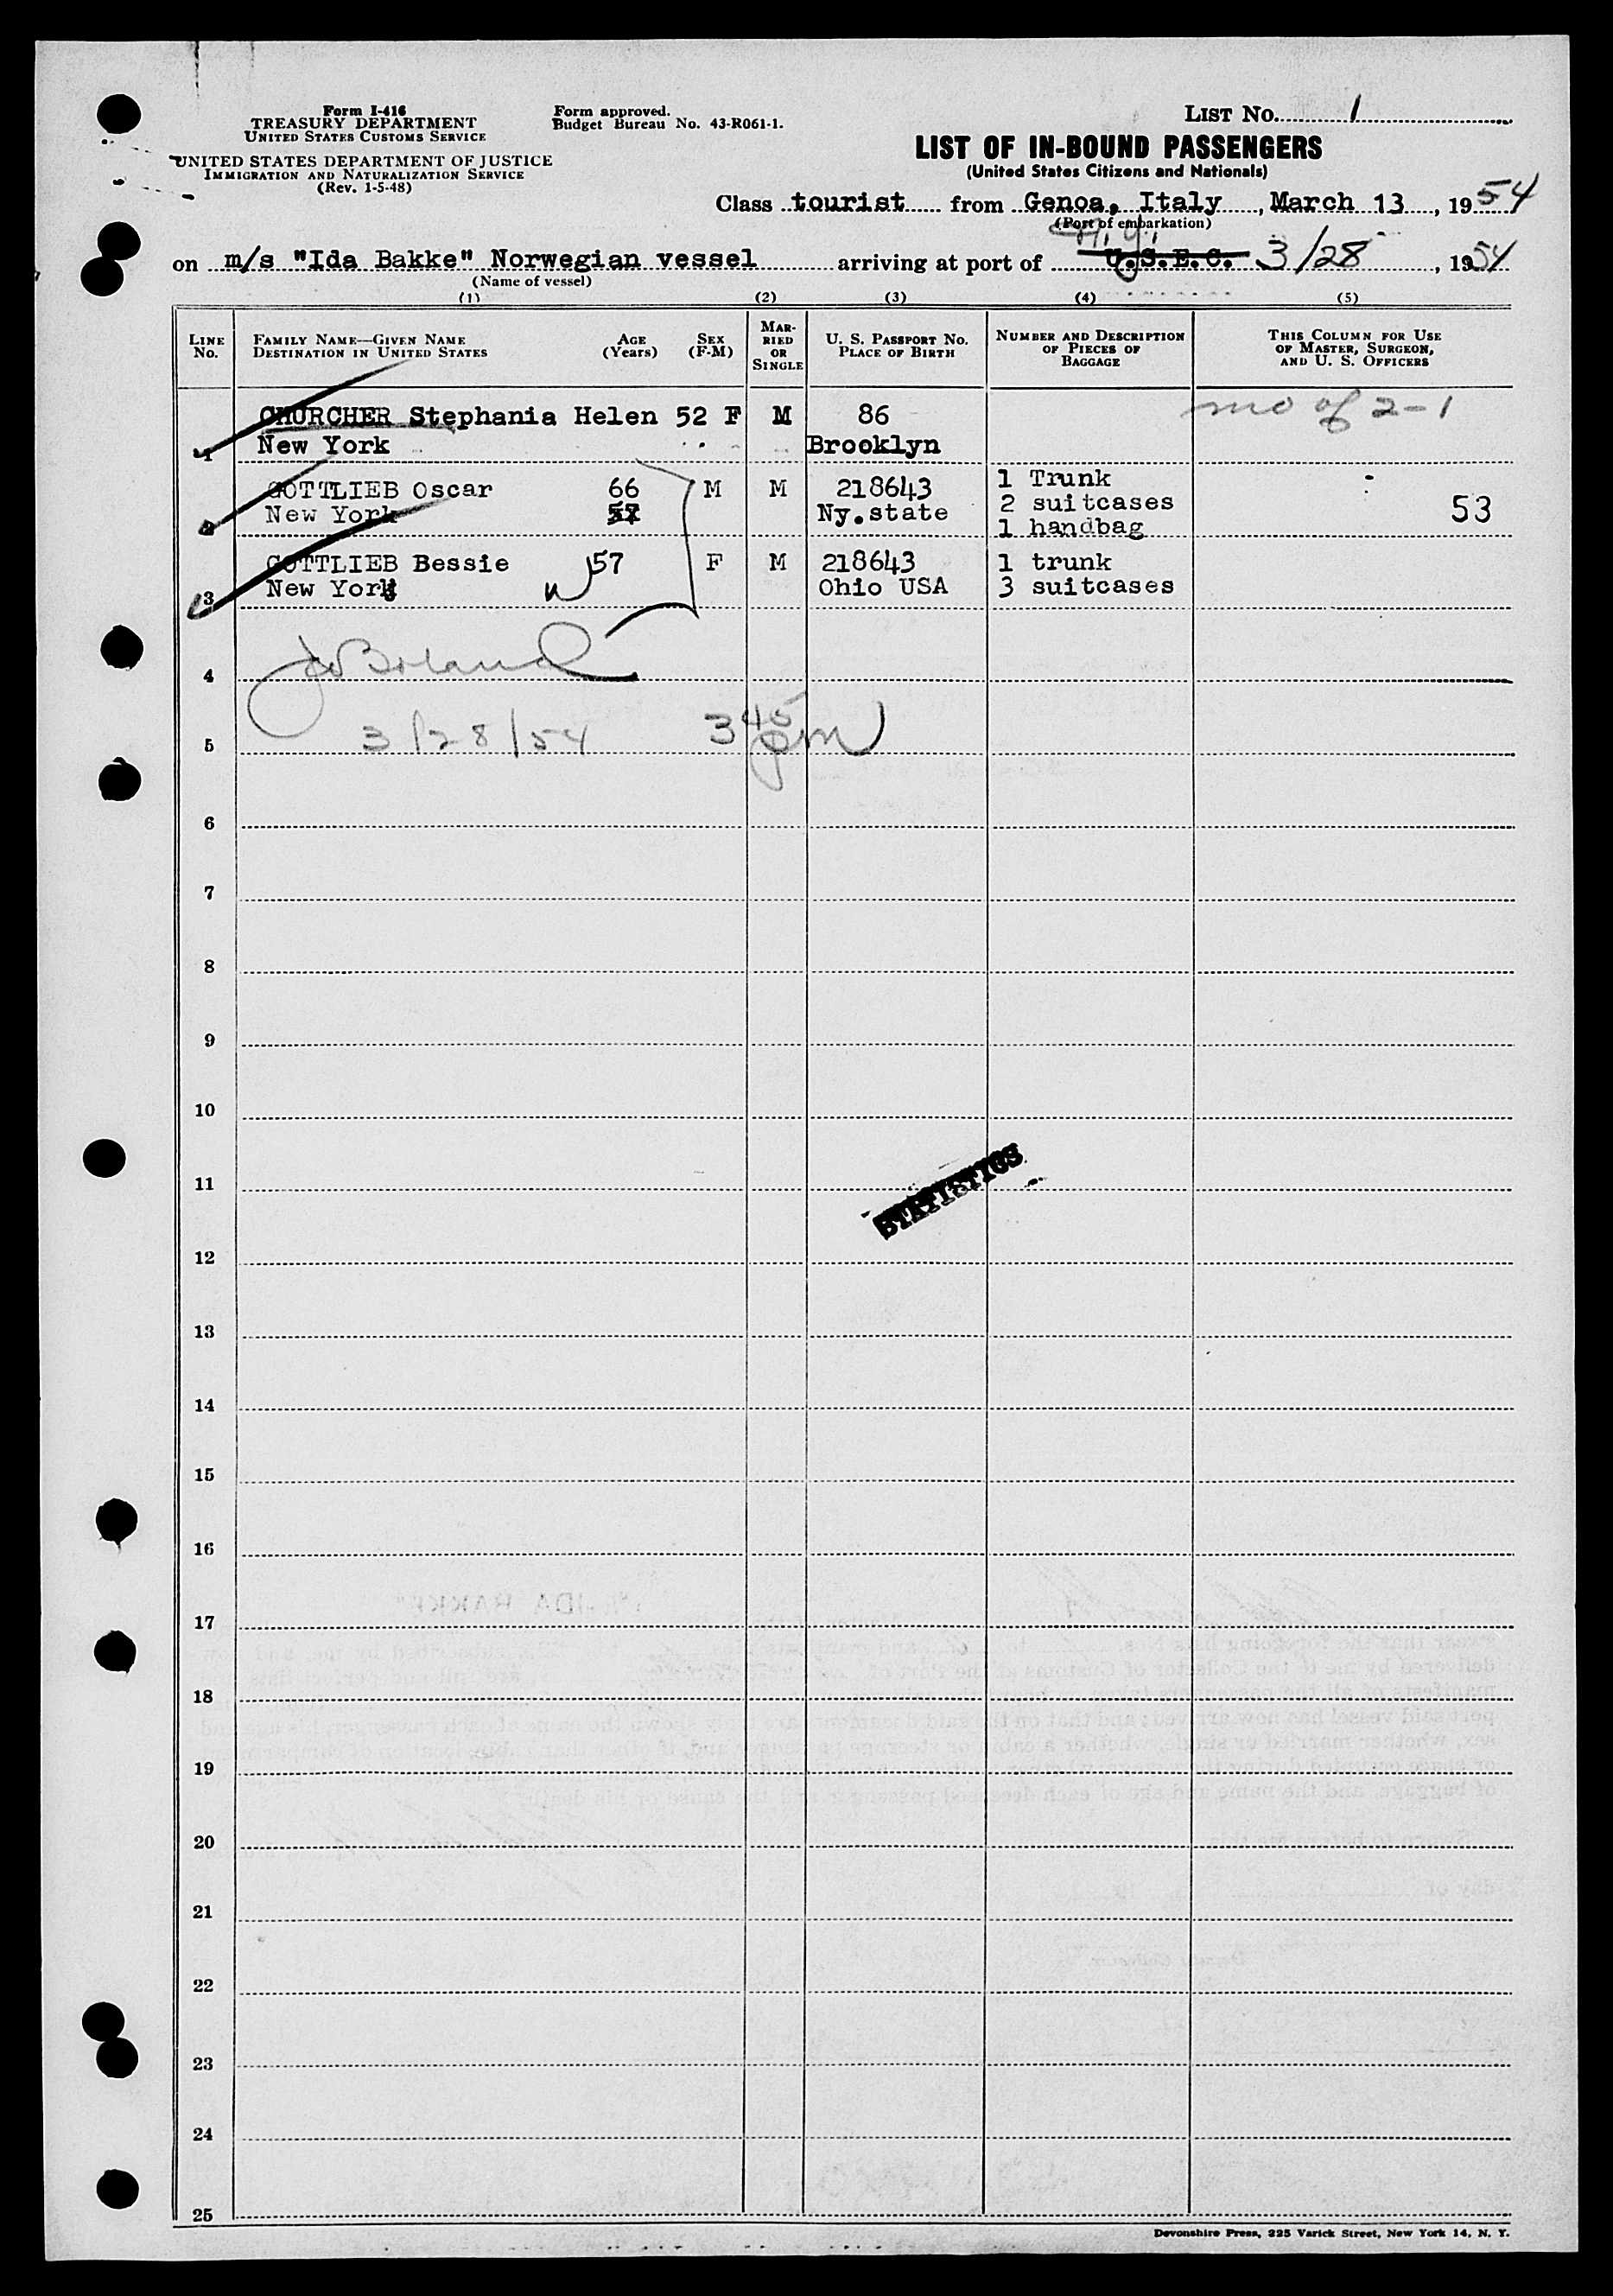 Form I-416
TREASURY DEPARTMENT
UNITED STATES CUSTOMS SERVICE
UNITED STATES DEPARTMENT OF JUSTICE
IMMIGRATION AND NATURALIZATION SERVICE
(Rev. 1-5-48)
Form approved.
Budget Bureau No. 43-R061-1.
LIST No. 1
LIST OF IN-BOUND PASSENGERS
(United States Citizens and Nationals)
Class tourist from Genoa, Italy, March 13, 1954
(Port of embarkation)
N.Y.
on m/s "Ida Bakke" Norwegian vessel arriving at port of U.S.E.C. 3/28, 1954
(Name of vessel)
(1) (2) (3) (4) (5)
LINE No. FAMILY NAME—GIVEN NAME DESTINATION IN UNITED STATES AGE (Years) SEX (F-M) MARRIED OR SINGLE U. S. PASSPORT NO. PLACE OF BIRTH NUMBER AND DESCRIPTION OF PIECES OF BAGGAGE THIS COLUMN FOR USE OF MASTER, SURGEON, AND U. S. OFFICERS
CHURCHER Stephania Helen 52 F M 86 mo of 2-1
1 New York Brooklyn
GOTTLIEB Oscar 66 M M 218643 1 Trunk
2 New York 57 Ny.state 2 suitcases 53
1 handbag
GOTTLIEB Bessie 57 F M 218643 1 trunk
3 New York Ohio USA 3 suitcases
4
5 3/28/54 3 45 pm
6
7
8
9
10
11
STATISTICS
12
13
14
15
16
17
18
19
20
21
22
23
24
25
Devonshire Press, 225 Varick Street, New York 14, N. Y.